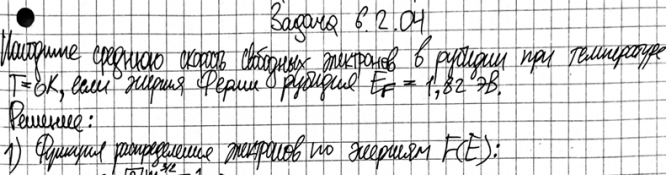 Задача 6.2.04
Находите среднюю скорость свободных электронов в рубидии при температуре
T=0К, если энергия Ферми рубидия E_F = 1,82 эВ.
Решение:
1) Функция распределение электронов по энергиям F(E):